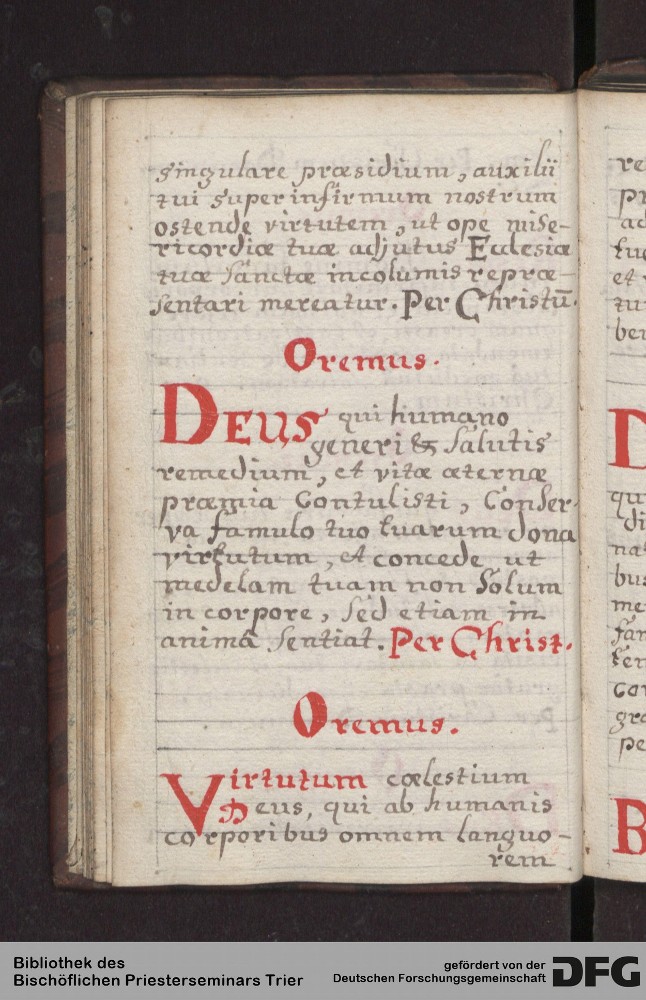 singulare præsidium, auxilii
tui super infirmum nostrum
ostende virtutem, ut ope mise-
ricordiæ tuæ adjutus Ecclesiæ
tuæ sanctæ incolumis repræ-
sentari mereatur. Per Christū.
Oremus.
DEUS qui humano
generi & salutis
remedium, et vitæ æternæ
præmia contulisti, Conser-
va famulo tuo tuarum dona
virtutum, et concede ut
medelam tuam non solum
in corpore, sed etiam in
animâ sentiat. Per Christ.
Oremus.
Virtutum cœlestium
Deus, qui ab humanis
corporibus omnem languo-
rem
re
pr
ad
tu
et
tu
ber
D
qu
di
nat
bus
me
fan
ter
cor
gra
pe
B
Bibliothek des
Bischöflichen Priesterseminars Trier
gefördert von der
Deutschen Forschungsgemeinschaft
DFG